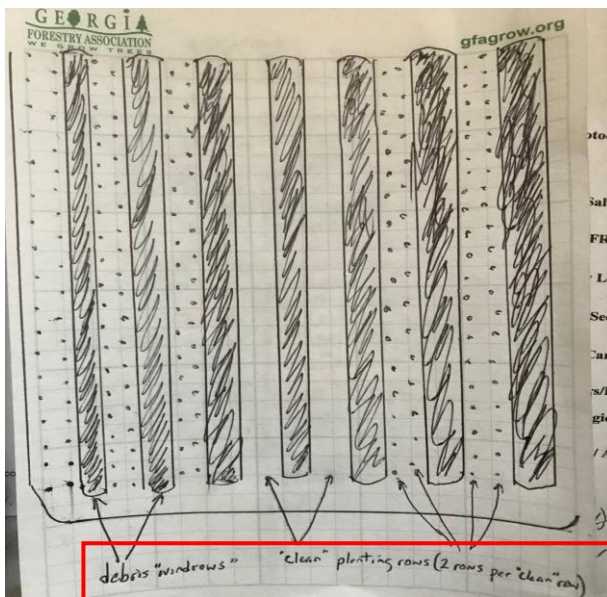 GEORGIA
FORESTRY ASSOCIATION
WE GROW TREES
gfagrow.org
debris "windrows"
"clean" planting rows (2 rows per "clean" row)